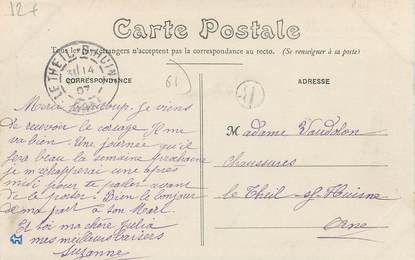 12 €
Carte Postale
Tous les étrangers n'acceptent pas la correspondance au recto. (Se renseigner à la poste)
CORRESPONDANCE
ADRESSE
14
07
61
Merci beaucoup. je viens
de recevoir le corsage. Il me
va bien. Une journée qu'il
fera beau la semaine prochaine
je m'échapperai une après
midi pour te parler avant
de le porter. Bien le bonjour
de ma part à son
Et toi ma chère Julia
mes meilleurs baisers
Suzanne
M adame Vaudolon
Chaussures
le Theil s/ Huisne
Orne